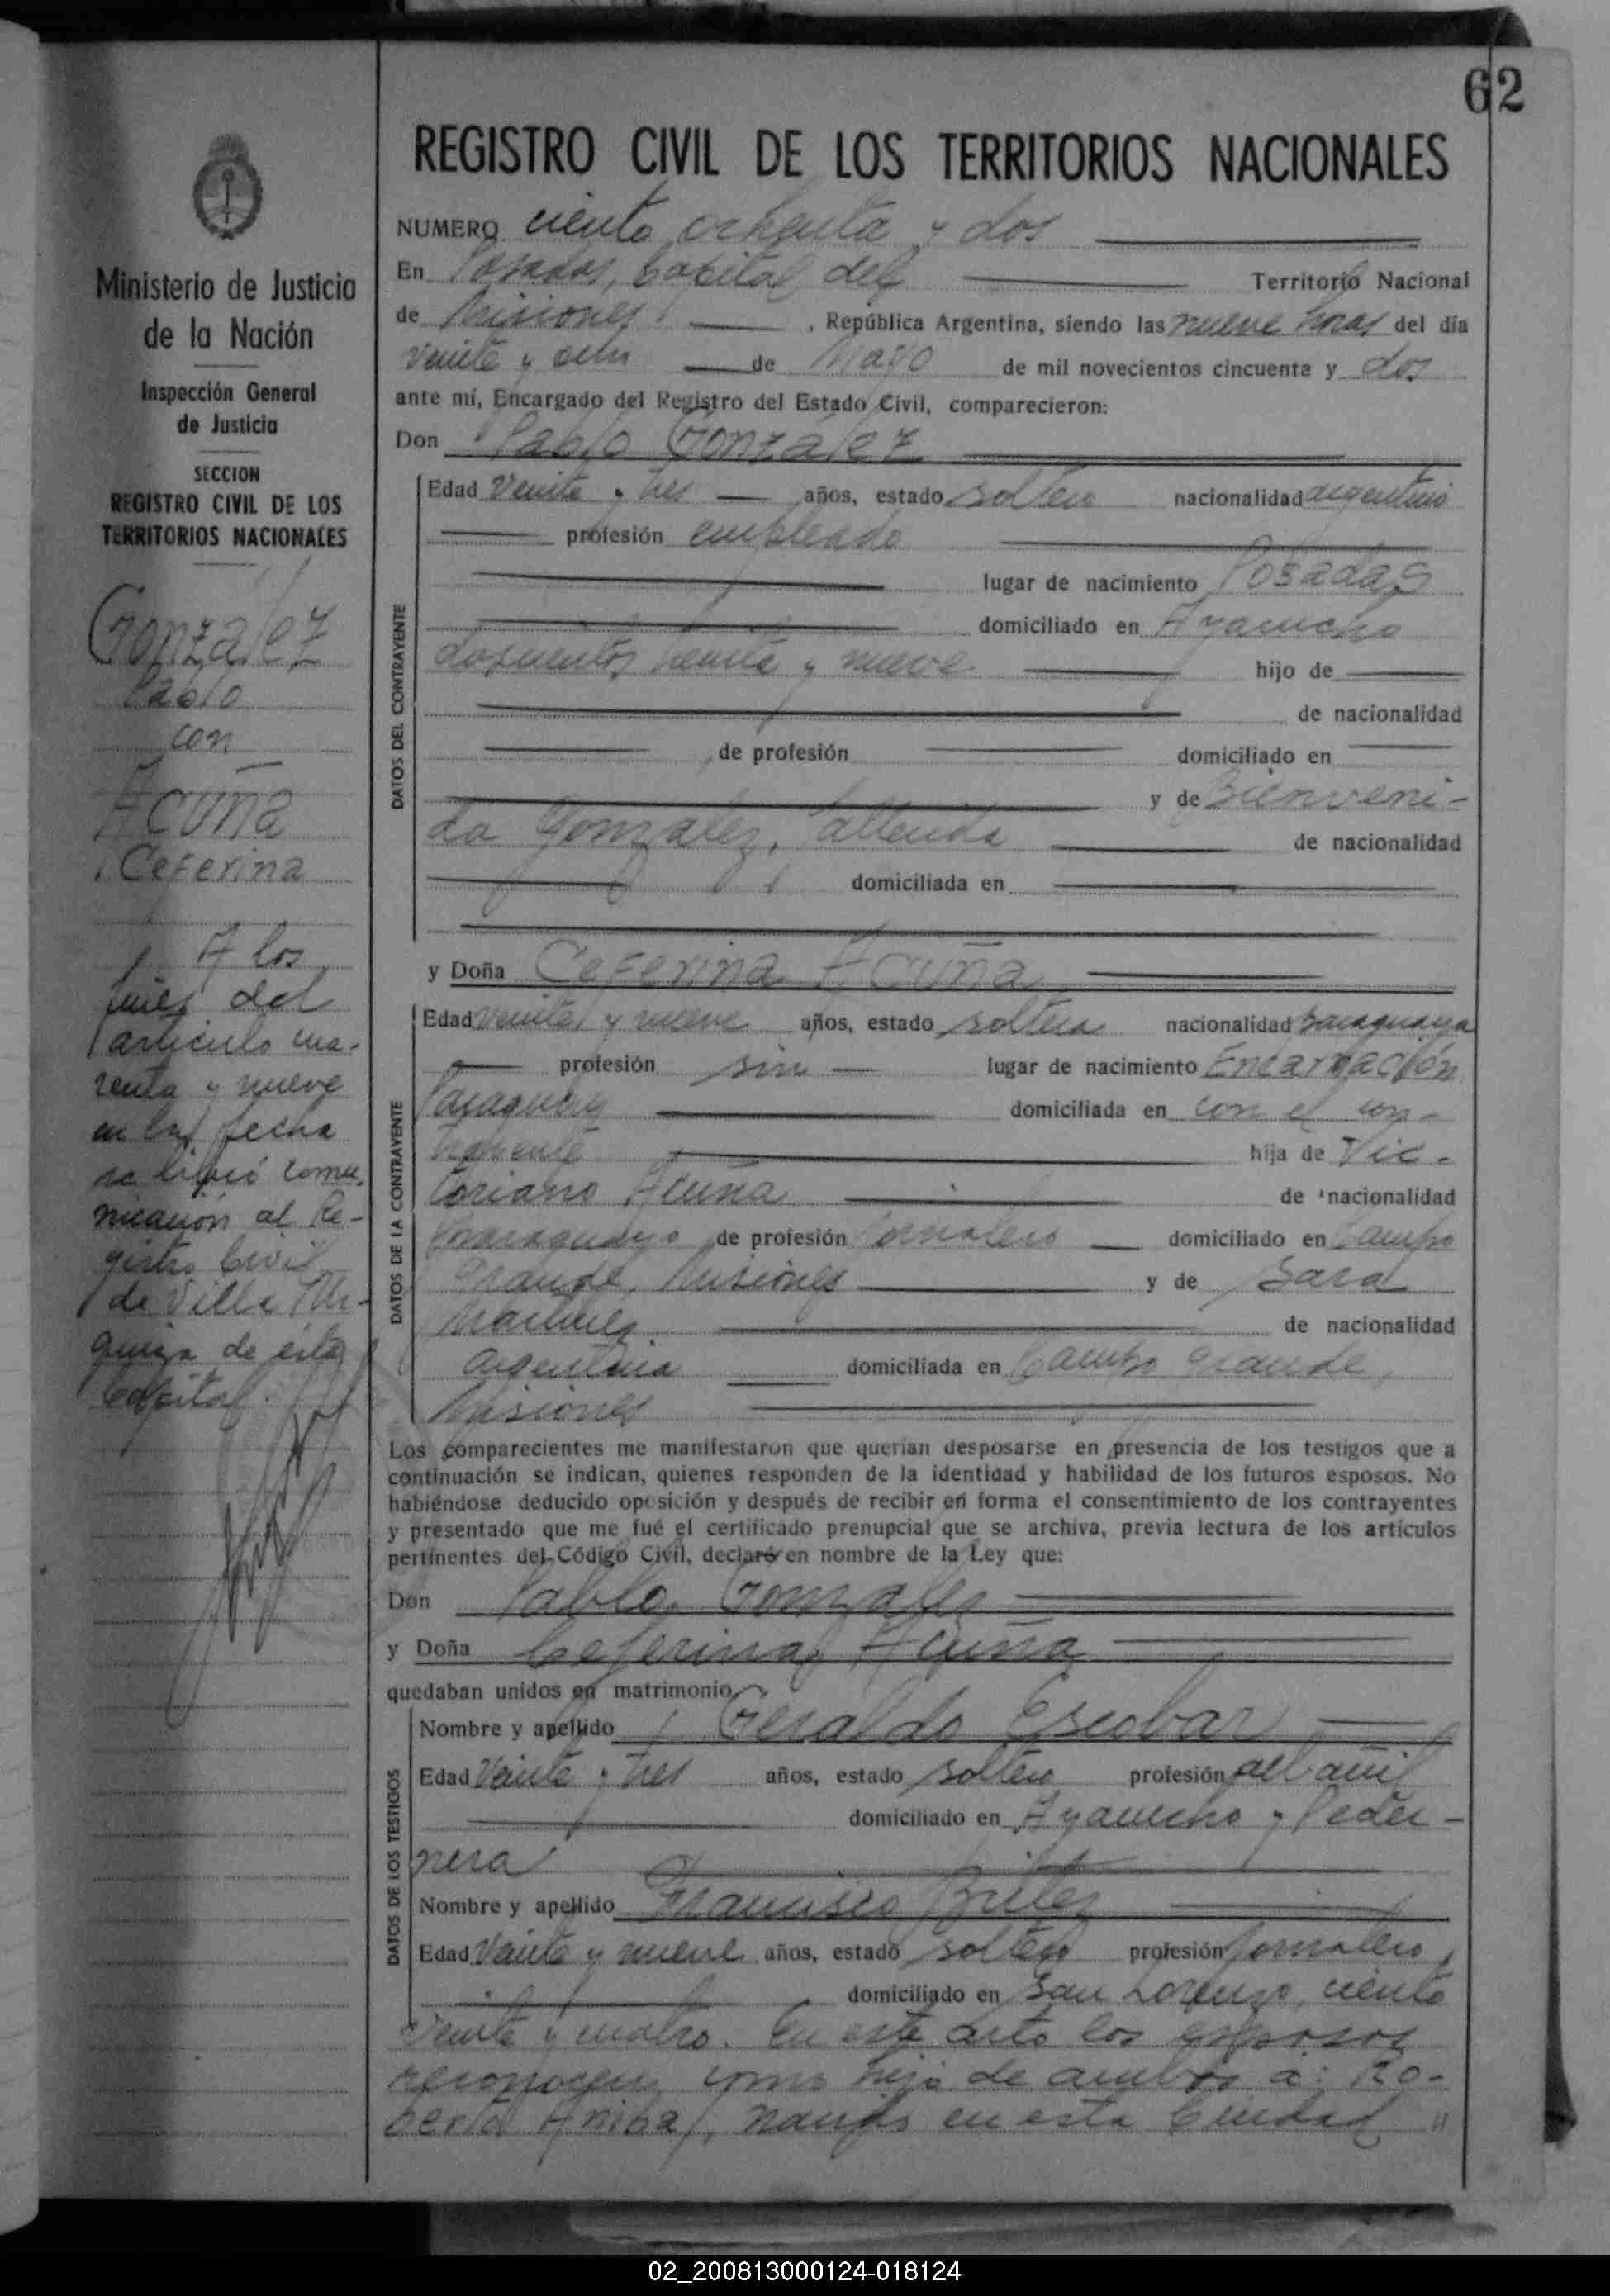 62
REGISTRO CIVIL DE LOS TERRITORIOS NACIONALES
Ministerio de Justicia
de la Nación
Inspección General
de Justicia
SECCION
REGISTRO CIVIL DE LOS
TERRITORIOS NACIONALES
Gonzalez
Pablo
con
Acuña
Ceferina
A los
fines del
articulo cua-
renta y nueve
en la fecha
se libró comu-
nicación al Re-
gistro Civil
de Villa Ur-
quiza de esta
Capital.
NUMERO ciento ochenta y dos
En Posadas, Capital del Territorio Nacional
de Misiones, República Argentina, siendo las nueve horas del día
veinte y ocho de Mayo de mil novecientos cincuenta y dos
ante mí, Encargado del Registro del Estado Civil, comparecieron:
Don Pablo González
DATOS DEL CONTRAYENTE
Edad veinte y tres años, estado soltero nacionalidad argentino
profesión empleado
lugar de nacimiento Posadas
domiciliado en Ayacucho
doscientos treinta y nueve hijo de
de nacionalidad
, de profesión domiciliado en
y de Bienveni-
da Gonzalez, de nacionalidad
domiciliada en
y Doña Ceferina Acuña
DATOS DE LA CONTRAYENTE
Edad veinte y nueve años, estado soltera nacionalidad paraguaya
profesión sin lugar de nacimiento Encarnación
Paraguay domiciliada en con el con-
trayente hija de Vic-
toriano Acuña de nacionalidad
paraguayo de profesión jornalero domiciliado en Campo
grande, Misiones y de Sara
Martinez de nacionalidad
argentina domiciliada en Campo grande,
Misiones
Los comparecientes me manifestaron que querían desposarse en presencia de los testigos que a
continuación se indican, quienes responden de la identidad y habilidad de los futuros esposos. No
habiéndose deducido oposición y después de recibir en forma el consentimiento de los contrayentes
y presentado que me fué el certificado prenupcial que se archiva, previa lectura de los artículos
pertinentes del Código Civil, declaro en nombre de la Ley que:
Don Pablo Gonzalez
y Doña Ceferina Acuña
quedaban unidos en matrimonio.
DATOS DE LOS TESTIGOS
Nombre y apellido Geraldo Escobar
Edad Veinte y tres años, estado soltero profesión albañil
domiciliado en Ayacucho y Peder-
nera
Nombre y apellido Francisco Britez
Edad Veinte y nueve años, estado soltero profesión jornalero,
domiciliado en San Lorenzo, ciento
veinte y cuatro. En este acto los esposos
reconocen como hijo de ambos a: Ro-
berto Anibal, nacido en esta Ciudad "
02_200813000124-018124